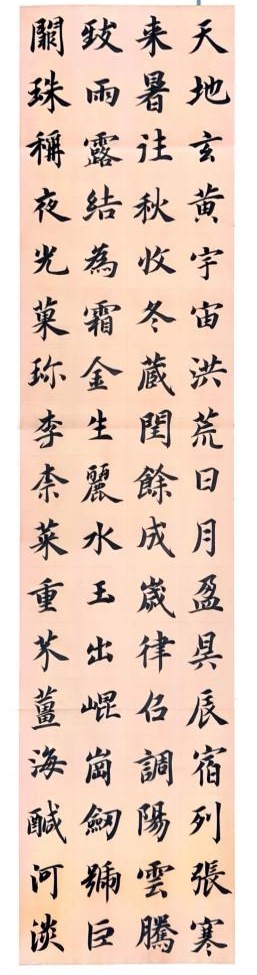 天地玄黄宇宙洪荒日月盈昃辰宿列張寒
来暑往秋收冬蔵閏餘成歲律召調陽雲騰
致雨露結為霜金生麗水玉出崐崗劒號巨
闕珠稱夜光菓珎李柰菜重芥薑海醎河淡